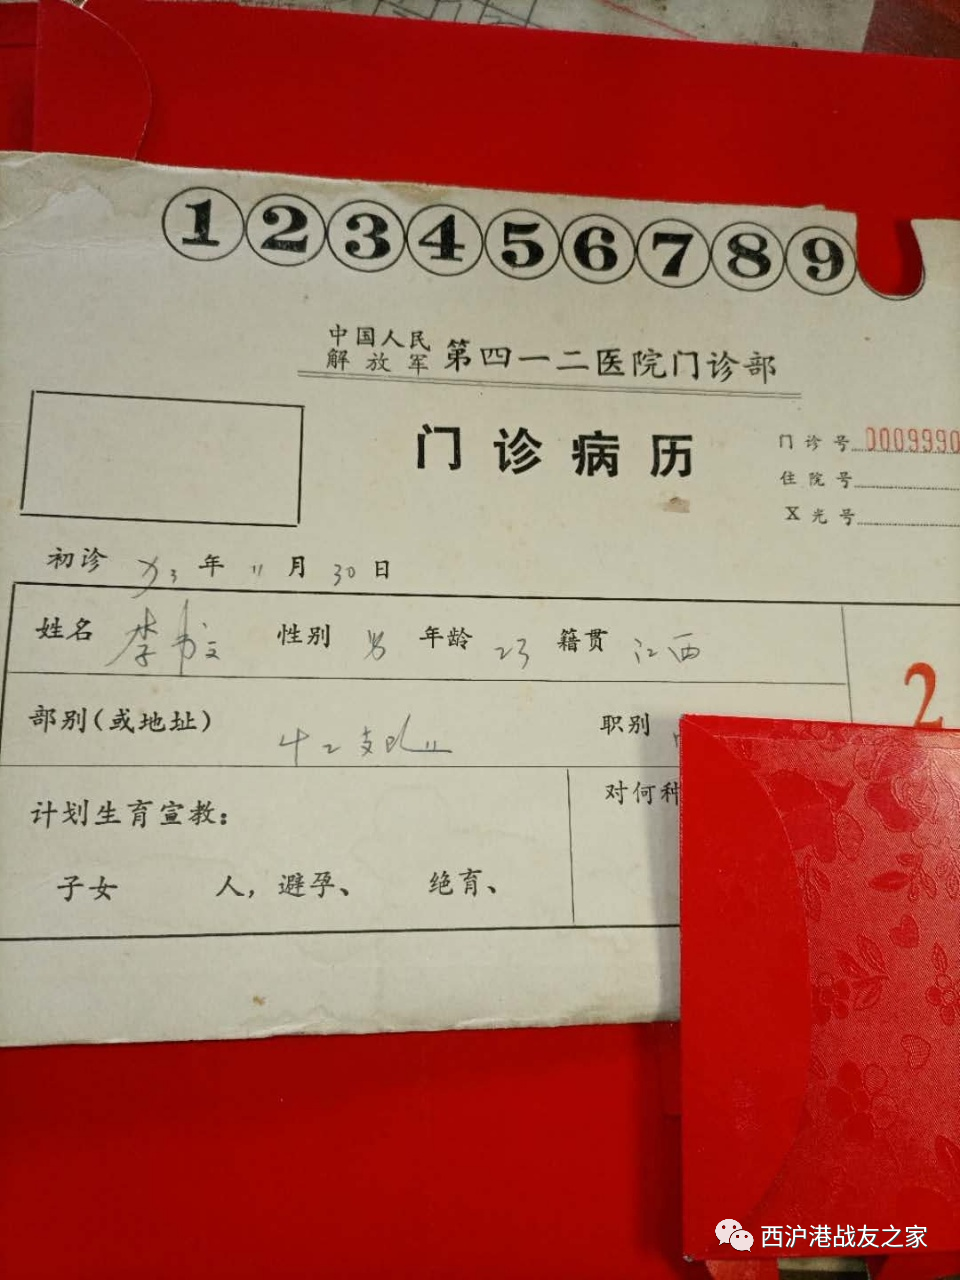 ①②③④⑤⑥⑦⑧⑨
中国人民解放军 第四一二医院门诊部
门诊病历
门诊号 0009990
住院号
X光号
初诊 年 11 月 30 日
姓名 李书文 性别 男 年龄 23 籍贯 江西
2
部别(或地址) 职别
计划生育宣教： 对何种
子女 人，避孕、 绝育、
西沪港战友之家